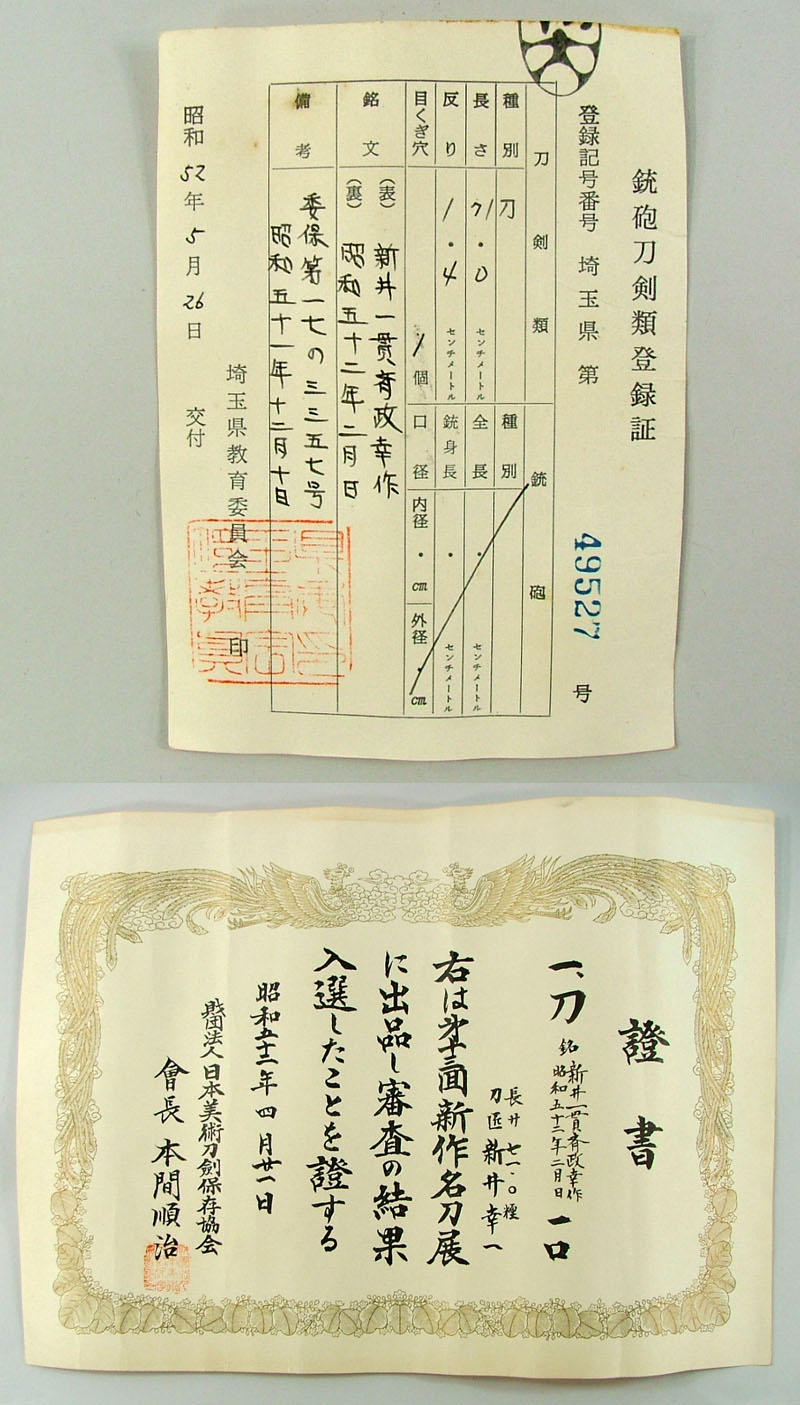 銃砲刀剣類登録証
登録記号番号 埼玉県 第 49527 号
刀剣類 銃砲
種別 刀 種別
長さ 71.0 センチメートル 全長 ・ センチメートル
反り 1.4 センチメートル 銃身長 ・ センチメートル
目くぎ穴 1個 口径 内径 ・ cm 外径 ・ cm
銘文 (表) 新井一貫斉政幸作
(裏) 昭和五十二年二月日
備考 委保第一七の三三五七号
昭和五十一年十二月十日
埼玉県教育委員会 印
昭和52年5月26日 交付
證書
一、刀 銘 新井一貫斉政幸作
昭和五十二年二月日 一口
長サ 七一.〇糎
刀匠 新井幸一
右は第十三回新作名刀展
に出品し審査の結果
入選したことを證する
昭和五十二年四月廿一日
財団法人日本美術刀劍保存協会
會長 本間順治